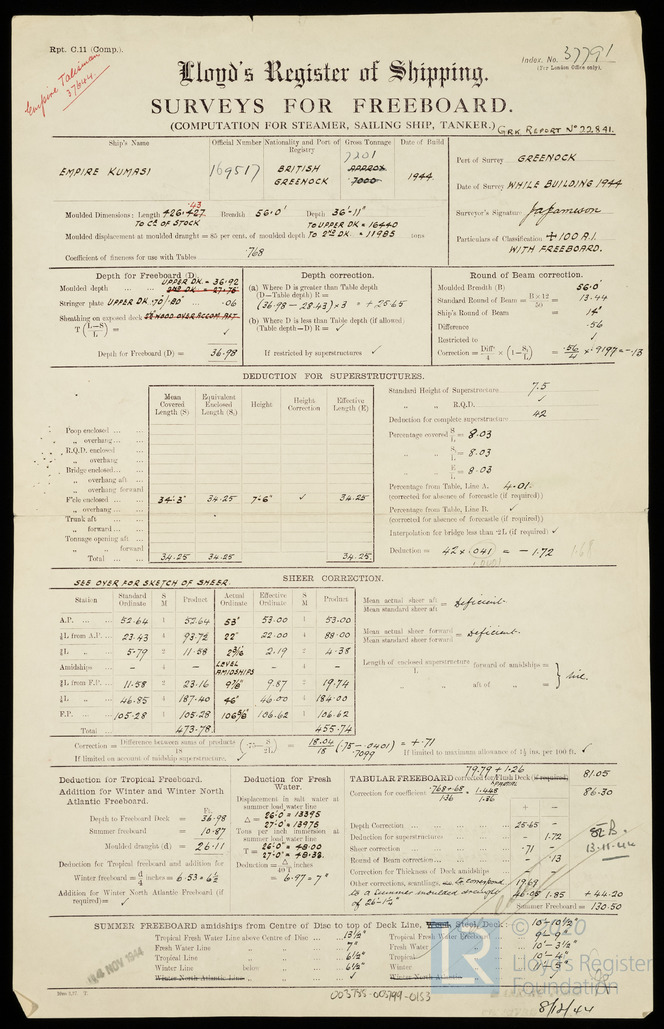 Rpt. C.11 (Comp.).
Empire Talisman
37644
Index. No. 37791
(For London Office only).
Lloyd's Register of Shipping.
SURVEYS FOR FREEBOARD.
(COMPUTATION FOR STEAMER, SAILING SHIP, TANKER.) GRK REPORT No 22,841.
Ship's Name Official Number Nationality and Port of Registry Gross Tonnage Date of Build
EMPIRE KUMASI 169517 BRITISH GREENOCK 7201 APPROX 7000 1944
Port of Survey GREENOCK
Date of Survey WHILE BUILDING 1944
Surveyor's Signature JAJameson
Particulars of Classification + 100 A.1. WITH FREEBOARD.
Moulded Dimensions: Length 426.427 .43 Breadth 56.0' Depth 36'-11"
TO CL OF STOCK TO UPPER DK = 16440
Moulded displacement at moulded draught = 85 per cent. of moulded depth TO 2ND DK. = 11985 tons
Coefficient of fineness for use with Tables .768
Depth for Freeboard (D).
UPPER DK. = 36.92
Moulded depth 2ND DK. = 27.75
Stringer plate UPPER DK .70/.80" .06
Sheathing on exposed deck 2½" WOOD OVER ACCOM. AFT
T (L-S/L) = ✓
Depth for Freeboard (D) = 36.98
Depth correction.
(a) Where D is greater than Table depth
(D—Table depth) R =
(36.98 - 28.43) × 3 = + 25.65
(b) Where D is less than Table depth (if allowed)
(Table depth—D) R = ✓
If restricted by superstructures ✓
Round of Beam correction.
Moulded Breadth (B) 56.0'
Standard Round of Beam = B×12/50 = 13.44
Ship's Round of Beam = 14"
Difference .56
Restricted to ✓
Correction = Diff/4 × (1-S₁/L) = .56/4 × .9197 = -.13
DEDUCTION FOR SUPERSTRUCTURES.
Mean Covered Length (S) Equivalent Enclosed Length (S₁) Height Height Correction Effective Length (E)
Poop enclosed
" overhang
R.Q.D. enclosed
" overhang
Bridge enclosed
" overhang aft
" overhang forward
F'cle enclosed 34'-3" 34.25 7'-6" ✓ 34.25
" overhang
Trunk aft
" forward
Tonnage opening aft
" " forward
Total 34.25 34.25 34.25
Standard Height of Superstructure 7.5
" " R.Q.D. ✓
Deduction for complete superstructure 42
Percentage covered S/L = 8.03
" " S₁/L = 8.03
" " E/L = 8.03
Percentage from Table, Line A. 4.01
(corrected for absence of forecastle (if required))
Percentage from Table, Line B. ✓
(corrected for absence of forecastle (if required))
Interpolation for bridge less than ·2L (if required) ✓
Deduction = 42 × .041 = - 1.72
SEE OVER FOR SKETCH OF SHEER.
SHEER CORRECTION.
Station Standard Ordinate S M Product Actual Ordinate Effective Ordinate S M Product
A.P. 52.64 1 52.64 53" 53.00 1 53.00
⅙L from A.P. 23.43 4 93.72 22" 22.00 4 88.00
⅓L " 5.79 2 11.58 2 3/16" 2.19 2 4.38
Amidships - 4 - LEVEL AMIDSHIPS - 4 -
⅓L from F.P. 11.58 2 23.16 9⅞" 9.87 2 19.74
⅙L " 46.85 4 187.40 46" 46.00 4 184.00
F.P. 105.28 1 105.28 106⅝" 106.62 1 106.62
Total 473.78 455.74
Mean actual sheer aft / Mean standard sheer aft = Deficient
Mean actual sheer forward / Mean standard sheer forward = Deficient
Length of enclosed superstructure / L forward of amidships =
" aft of " = } nil.
Correction = Difference between sums of products / 18 (·75 - S/2L) = 18.04/18 (.75 - .0401) = + .71
.7099
If limited on account of midship superstructure. If limited to maximum allowance of 1½ ins. per 100 ft. ✓
Deduction for Tropical Freeboard.
Addition for Winter and Winter North Atlantic Freeboard.
Ft.
Depth to Freeboard Deck = 36.98
Summer freeboard = 10.87
Moulded draught (d) = 26.11
Deduction for Tropical freeboard and addition for
Winter freeboard = d/4 inches = 6.53 = 6½
Addition for Winter North Atlantic Freeboard (if required) = ✓
Deduction for Fresh Water.
Displacement in salt water at summer load water line
Δ = 26'.0 = 13395
27'.0 = 13975
Tons per inch immersion at summer load water line
T = 26'.0 = 48.00
27'.0 = 48.38
Deduction = Δ/40T inches
= 6.97 = 7"
TABULAR FREEBOARD corrected for Flush Deck (if required) 79.79 + 1.26 81.05
Correction for coefficient .768+.68/1.36 = 1.448/1.36 86.30
+ -
Depth Correction 25.65 -
Deduction for superstructures - 1.72
Sheer correction .71 -
Round of Beam correction - .13
Correction for Thickness of Deck amidships
Other corrections, scantlings, &c to correspond to a summer moulded draught of 26'-1¼" 19.69
46.05 1.85 + 44.20
Summer Freeboard = 130.50
13.11.44
SUMMER FREEBOARD amidships from Centre of Disc to top of Deck Line, Wood, Steel, Deck: 10'-10½"
Tropical Fresh Water Line above Centre of Disc 13½" Tropical Fresh Water Freeboard 9'-9"
Fresh Water Line " " 7" Fresh Water " 10'-3½"
Tropical Line " " 6½" Tropical " 10'-4"
Winter Line below " 6½" Winter " 11'-5"
Winter North Atlantic Line " ✓ Winter North Atlantic "
14 NOV 1944
© 2020
LR
Lloyd's Register
Foundation
003788-003799-0153
8/12/44